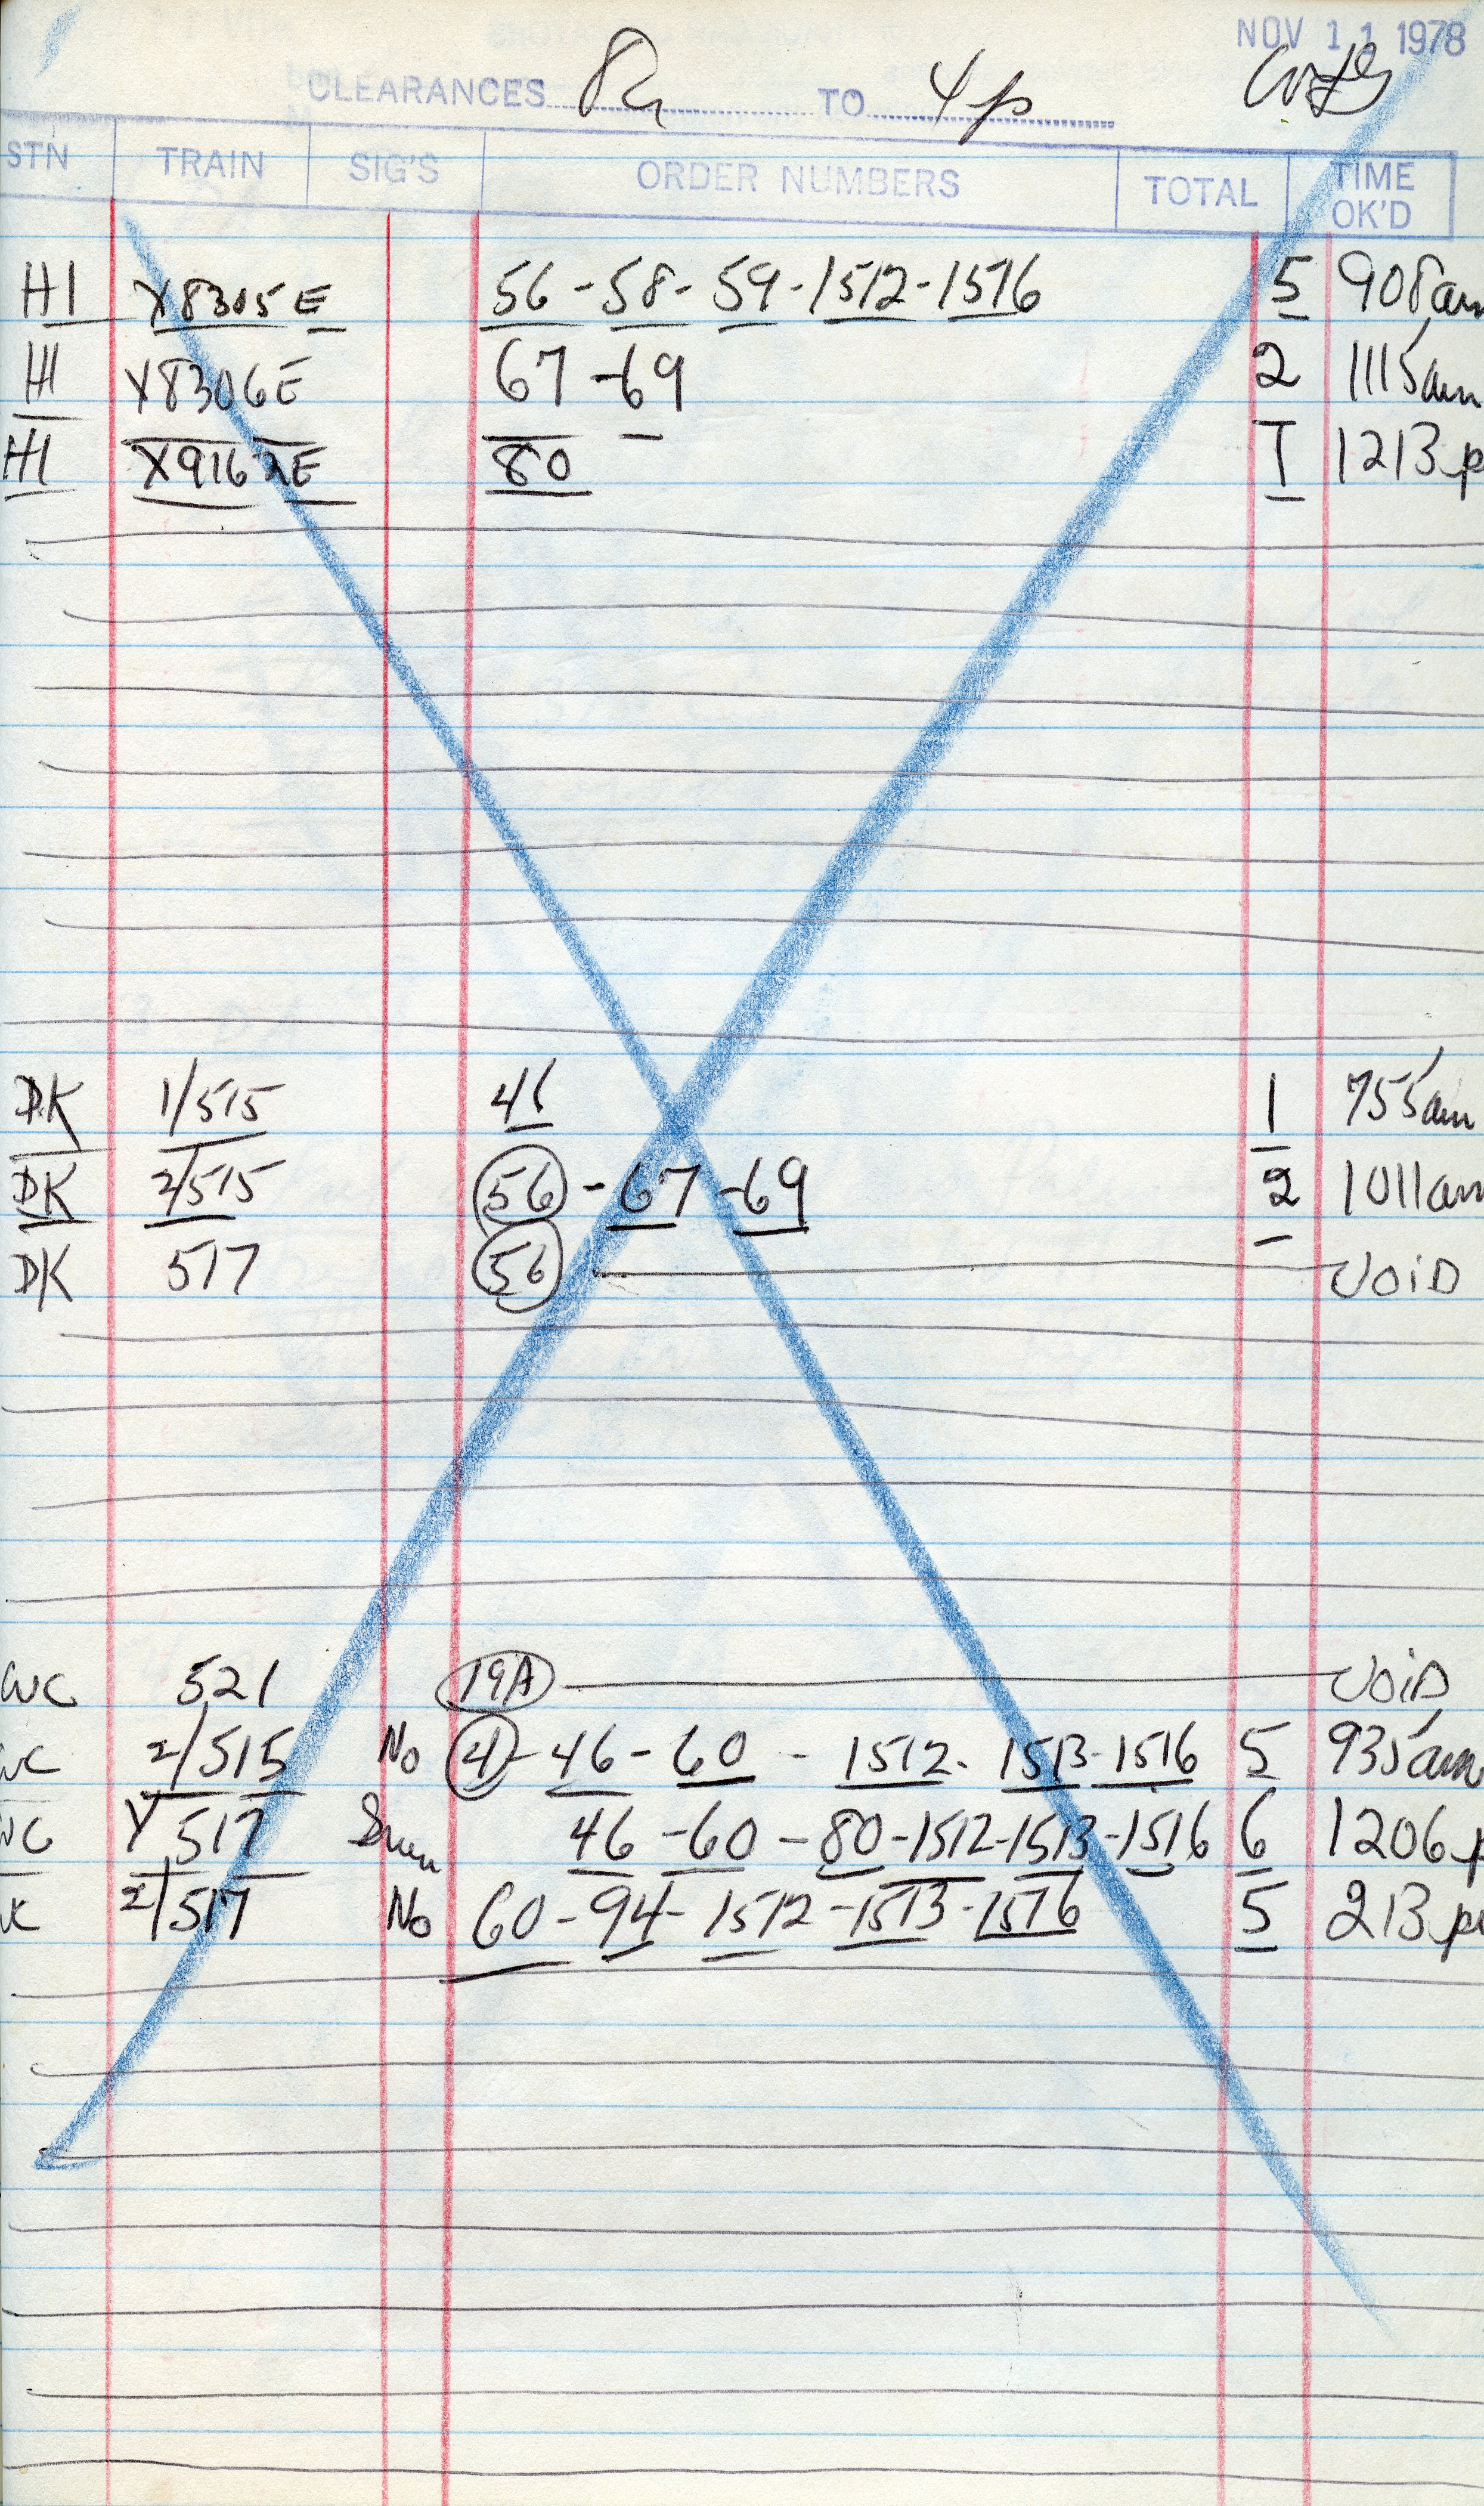 NOV 11 1978
CLEARANCES 8a TO 4p
STN TRAIN SIG'S ORDER NUMBERS TOTAL TIME OK'D
HI X8305E 56-58-59-1512-1516 5 908am
HI X8306E 67-69 2 1115am
HI X9162E 80 1 1213p
DK 1/515 46 1 755am
DK 2/515 56-67-69 2 1011am
DK 517 56 VOID
WC 521 19A VOID
WC 2/515 No 4-46-60-1512-1513-1516 5 935am
WC 1/517 46-60-80-1512-1513-1516 6 1206p
2/517 No 60-94-1512-1513-1516 5 213p